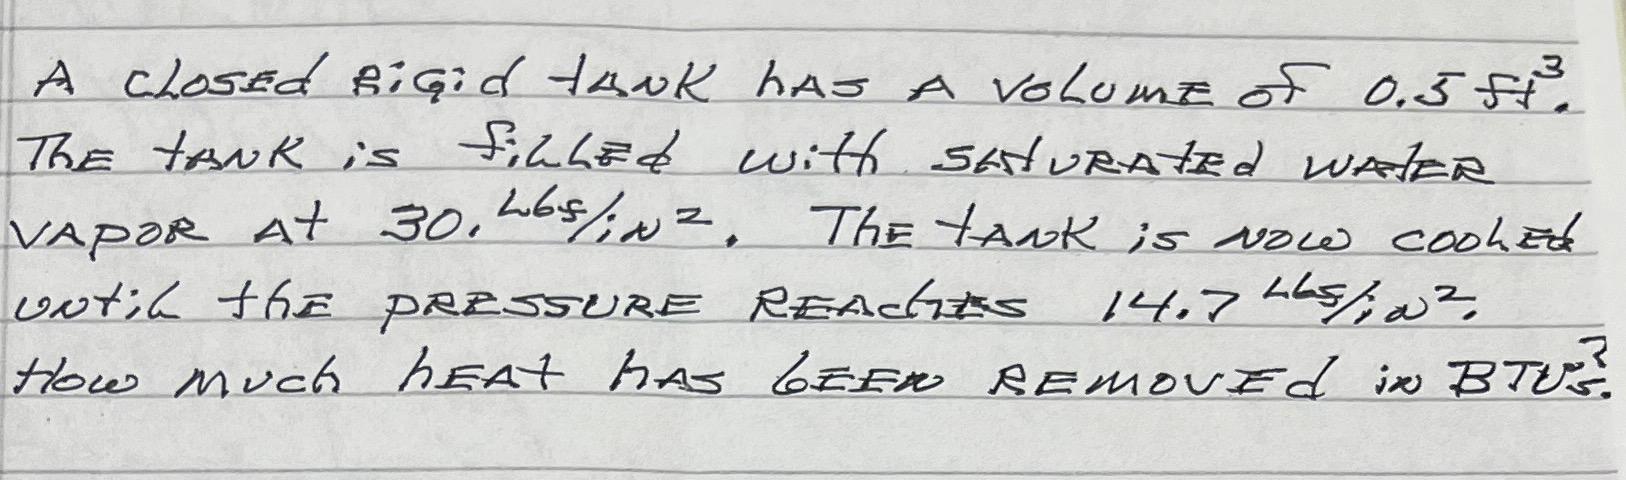 A closed Rigid tank has a volume of 0.5 ft³.
The tank is filled with saturated water
vapor at 30. Lbf/in². The tank is now cooled
until the pressure reaches 14.7 Lbf/in².
How much heat has been removed in BTU's?